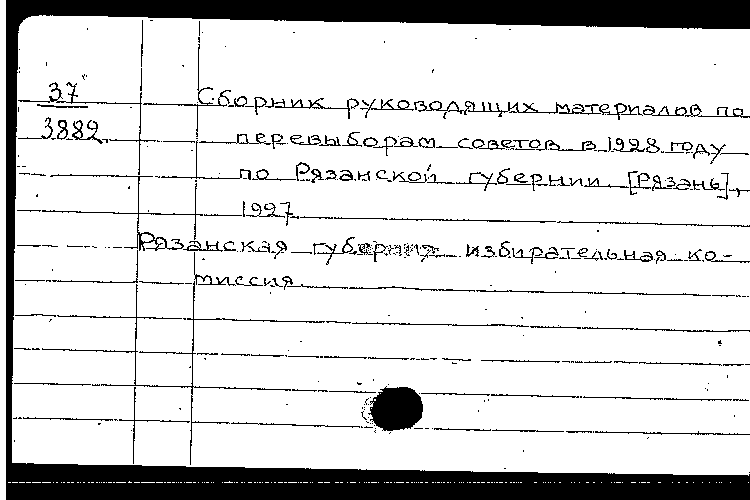 37
3882
Сборник руководящих материалов по
перевыборам советов в 1928 году
по Рязанской губернии. [Рязань],
1927.
Рязанская губерния избирательная ко-
миссия.